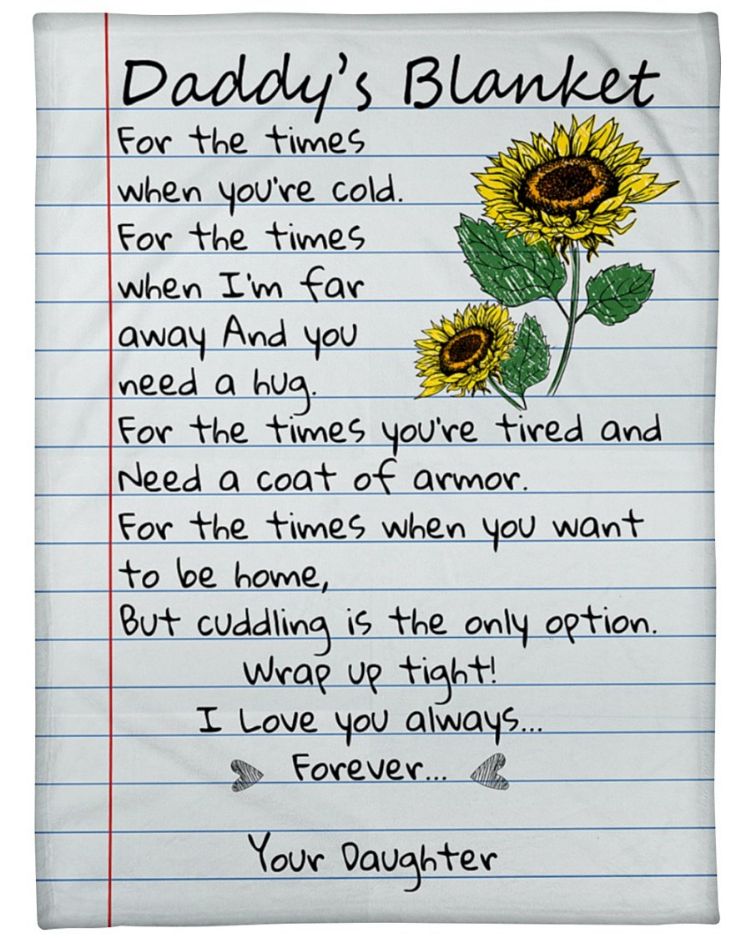 Daddy's Blanket
For the times
when you're cold.
For the times
when I'm far
away And you
need a hug.
For the times you're tired and
Need a coat of armor.
For the times when you want
to be home,
But cuddling is the only option.
Wrap up tight!
I Love you always...
Forever...
Your Daughter